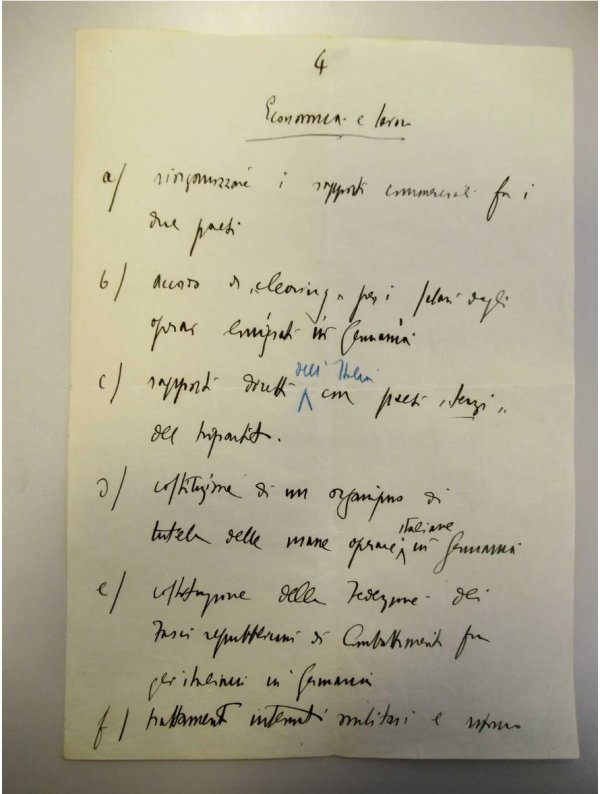 4
Economia e lavoro
a) riorganizzare i rapporti commerciali fra i
due paesi
b) accordo di „clearing„ per i salari degli
operai emigrati in Germania
c) rapporti diretti dell'Italia con paesi „terzi„
del tripartito.
d) costituzione di un organismo di
tutela delle mane operaie italiane in Germania
e) costituzione della Federazione dei
Fasci repubblicani di Combattimento fra
gli italiani in Germania
f) trattamenti internati militari e